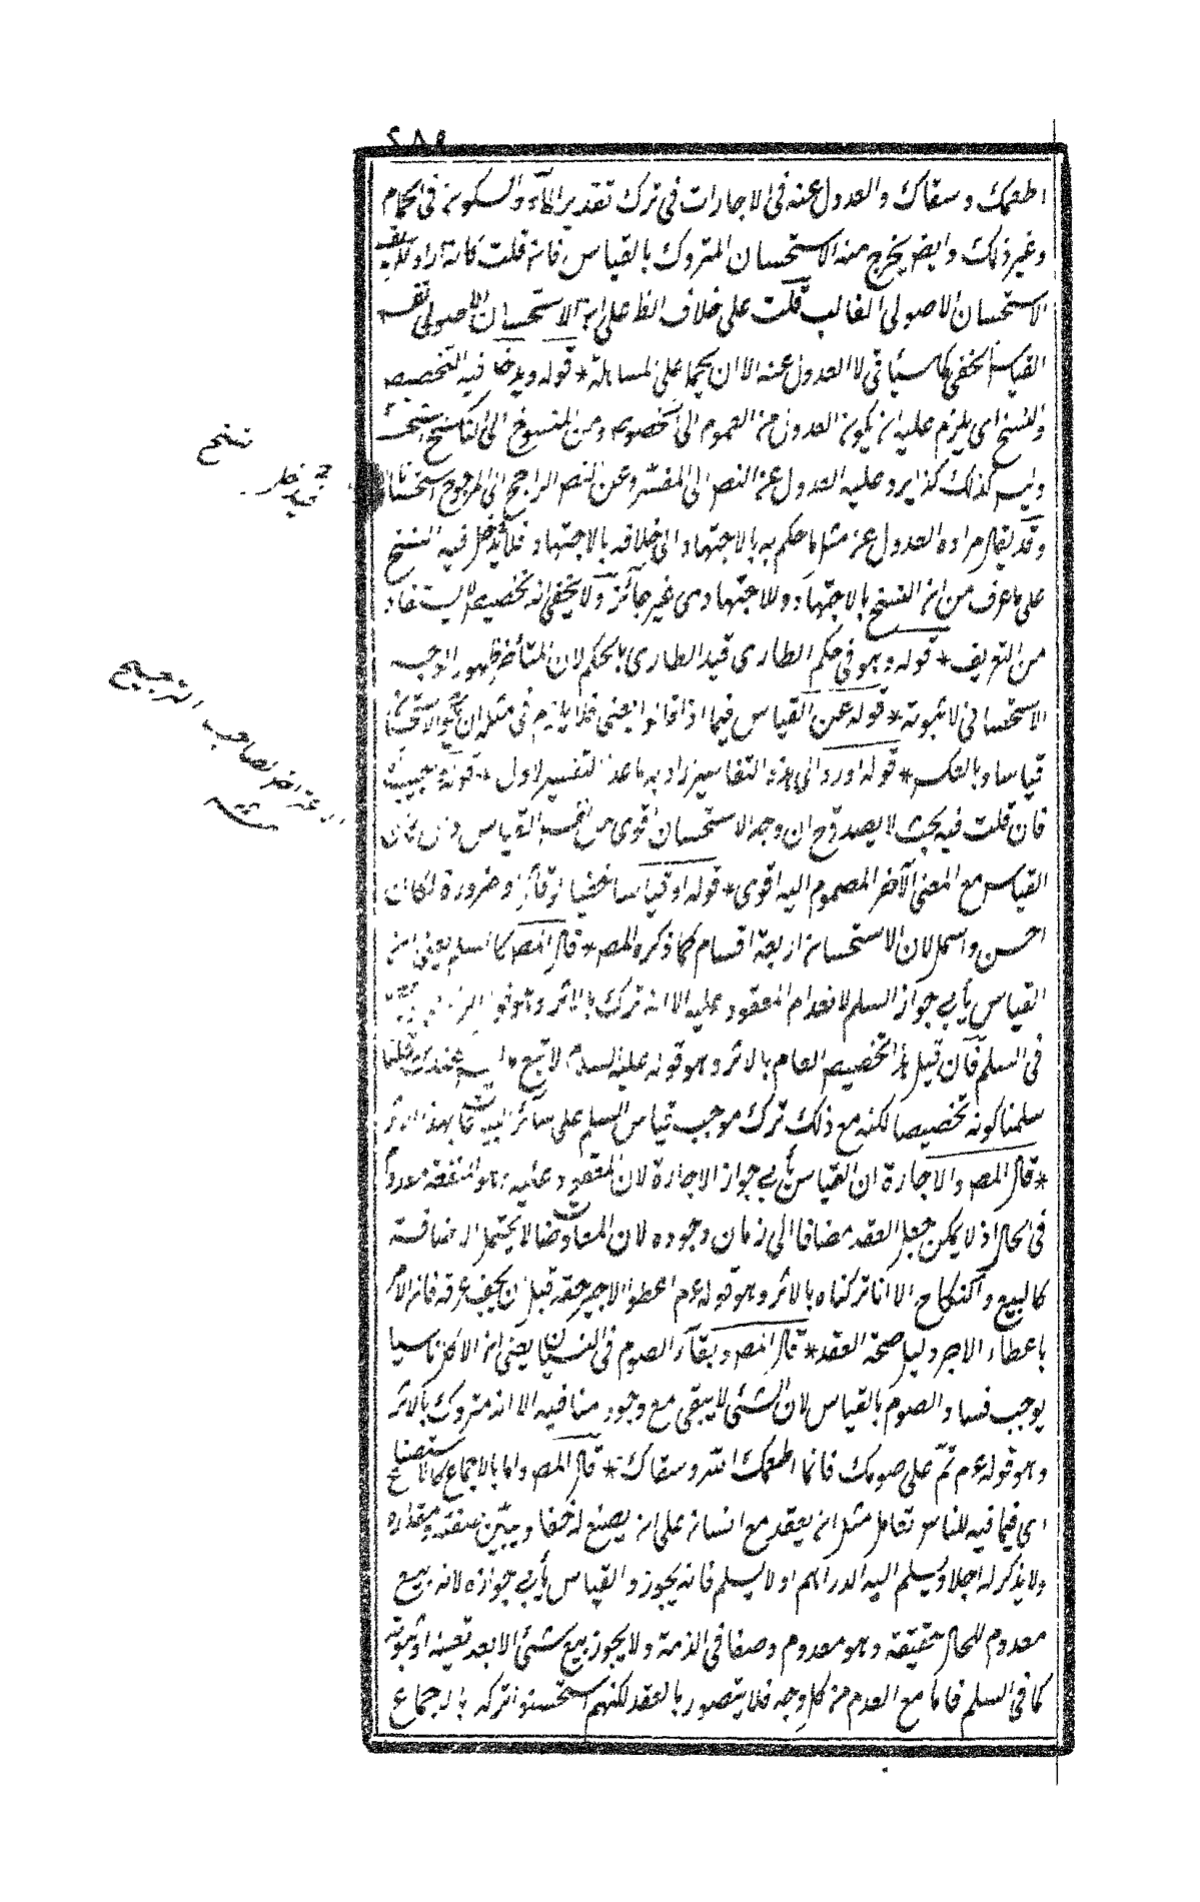 ٢٨٩
اطعمك وسقاك والعدول عنه فى الاجارات فى ترك تقدير الماء والسكون فى الحمام
وغير ذلك وايضا يخرج منه الاستحسان المتروك بالقياس فان قلت كانه اراد
الاستحسان الاصولى الغالب قلت على خلاف الظ على ان الاستحسان الاصولى نفس
القياس الخفى كما سيأتى لا العدول عنه الا ان يحمل على المساهلة * قوله ويدخل فيه التخصيص
والنسخ اى يلزم عليه ان يكون العدول من العموم الى الخصوص ومن المنسوخ الى الناسخ
وليس كذلك كذا يرد عليه العدول عن النص الى المفسر وعن النص الراجح الى المرجوح استحسانا
وقد يقال مراده العدول عن مثل ما حكم به بالاجتهاد الى خلافه بالاجتهاد فلا يدخل فيه النسخ
على ما عرف من ان النسخ بالاجتهاد وللاجتهادى غير جائز ولا يخفى انه تخصيص لا يستفاد
من التعريف * قوله وهو فى حكم الطارى قيد الطارى بالحكم لان المتأخر ظهور الوجه
الاستحسانى لا ثبوته * قوله عن القياس فيما اذا قالوا يعنى فلا يلزم فى مثله ان
قياسا وبالعكس * قوله اورد الى هذه التفاسير زاد به ما عدا التفسير الاول * قوله
فان قلت فيه بحث لا يصدق ح ان وجه الاستحسان اقوى من نفس القياس
القياس مع المعنى الآخر المضموم اليه اقوى * قوله او قياسا خفيا او وضرورة لكان
احسن واسمل لان الاستحسان اربعة اقسام كما ذكره المص * قال المص كالسلم يعنى ان
القياس يأبى جواز السلم لانعدام المعقود عليه الا انه ترك بالاثر وهو قوله
فى السلم فان قيل هذا تخصيص العام بالاثر وهو قوله عليه السلام لا تبع ما ليس عندك قلنا
سلمنا كونه تخصيصا لكنه مع ذلك ترك موجب قياس السلم على سائر البياعات بهذا الاثر
* قال المص والاجارة ان القياس يأبى جواز الاجارة لان المعقود عليه هو المنفعة معدوم
فى الحال اذ لا يمكن جعل العقد مضافا الى زمان وجوده لان المعاوضات لا يحتمل الاضافة
كالبيع والنكاح الا انا تركناه بالاثر وهو قوله ءم اعطوا الاجير حقه قبل ان يجف عرقه فان الامر
باعطاء الاجر دليل صحة العقد * قال المص وبقاء الصوم فى النسيان يعنى ان الاكل ناسيا
يوجب فساد الصوم بالقياس لان الشئ لا يبقى مع وجود منافيه الا انه متروك بالاثر
وهو قوله ءم تم على صومك فانما اطعمك الله وسقاك * قال المص واما بالاجماع كالاستصناع
اى فيما فيه للناس تعامل مثل ان يعقد مع انسان على ان يصنع له خفا ويبين صفته ومقداره
ولا يذكر له اجلا ويسلم اليه الدراهم او لا يسلم فانه يجوز والقياس يأبى جوازه لانه بيع
معدوم للحال حقيقة وهو معدوم وصفا فى الذمة ولا يجوز بيع شئ الا بعد تعينه او ثبوته
كما فى السلم فاما مع العدم من كل وجه فلا يتصور بالعقد لكنهم استحسنوا تركه بالاجماع
نسخ
الترجيح